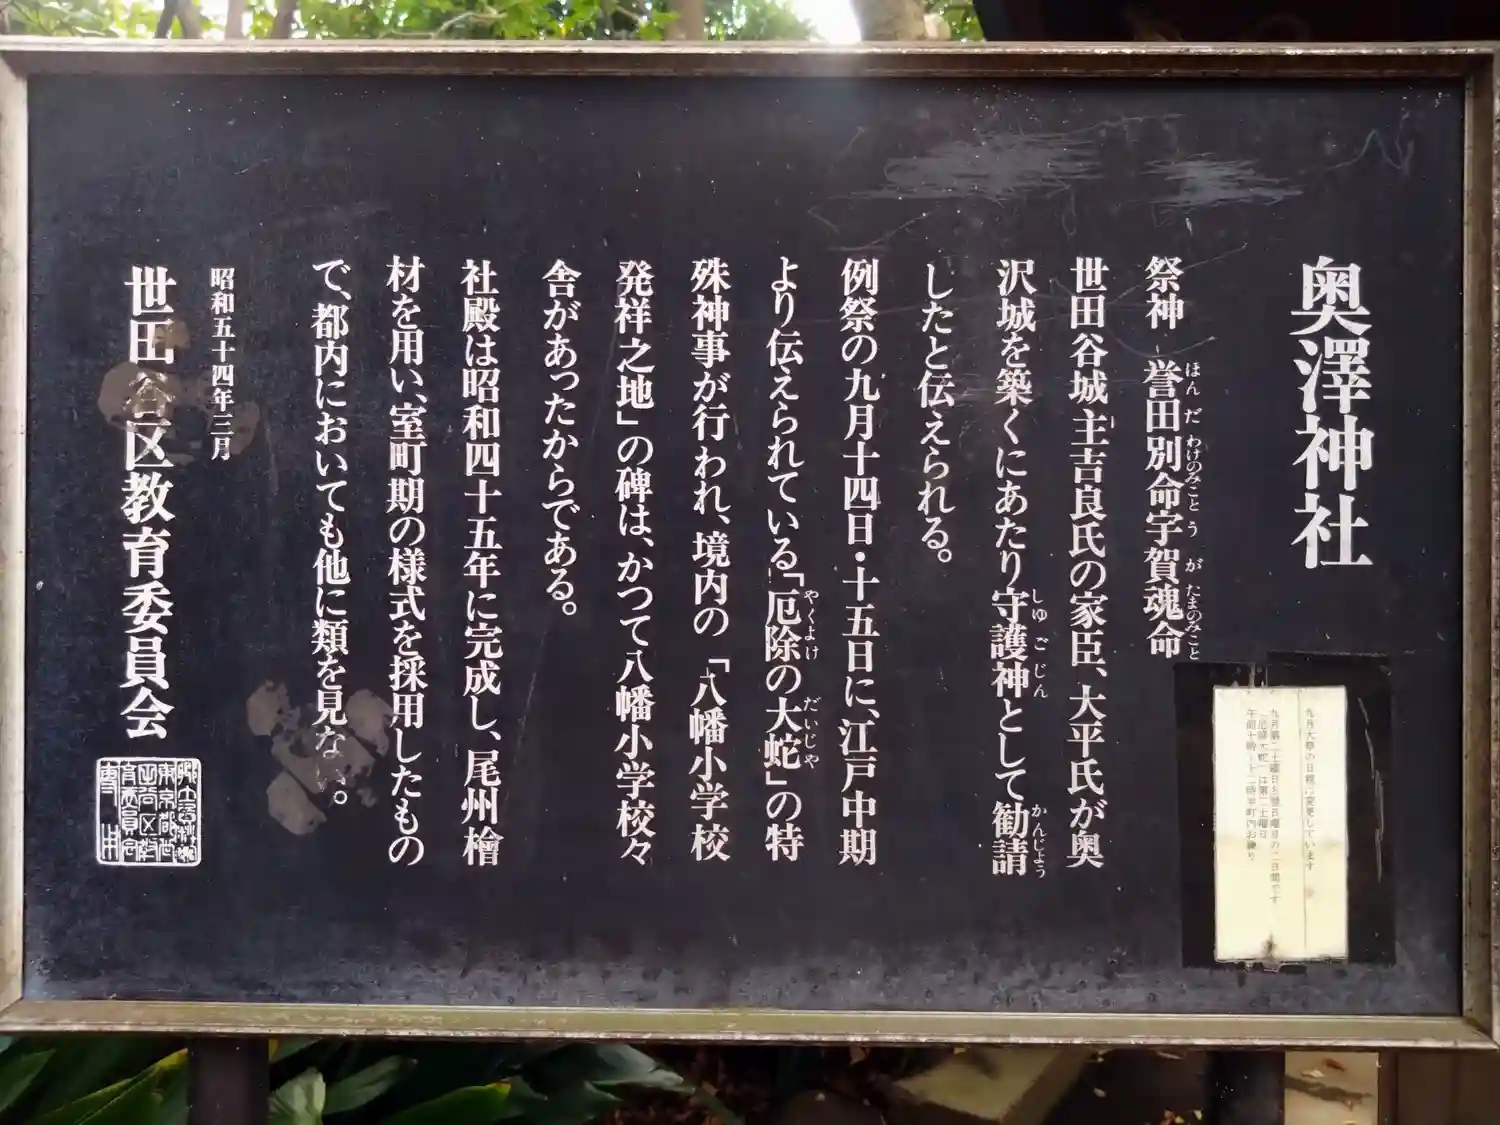 奥澤神社
祭神 誉田別命宇賀魂命
ほんだわけのみことうがたまのみこと
世田谷城主吉良氏の家臣、大平氏が奥
沢城を築くにあたり守護神として勧請
しゅごじん
かんじょう
したと伝えられる。
例祭の九月十四日・十五日に、江戸中期
より伝えられている「厄除の大蛇」の特
やくよけ
だいじゃ
殊神事が行われ、境内の「八幡小学校
発祥之地」の碑は、かつて八幡小学校々
舎があったからである。
社殿は昭和四十五年に完成し、尾州檜
材を用い、室町期の様式を採用したもの
で、都内においても他に類を見ない。
昭和五十四年三月
世田谷区教育委員会
九月大祭の日程は変更しています
九月第二土曜日と翌日曜日の二日間です
「厄除大蛇」は第二土曜日
午前十時~十二時半町内お練り